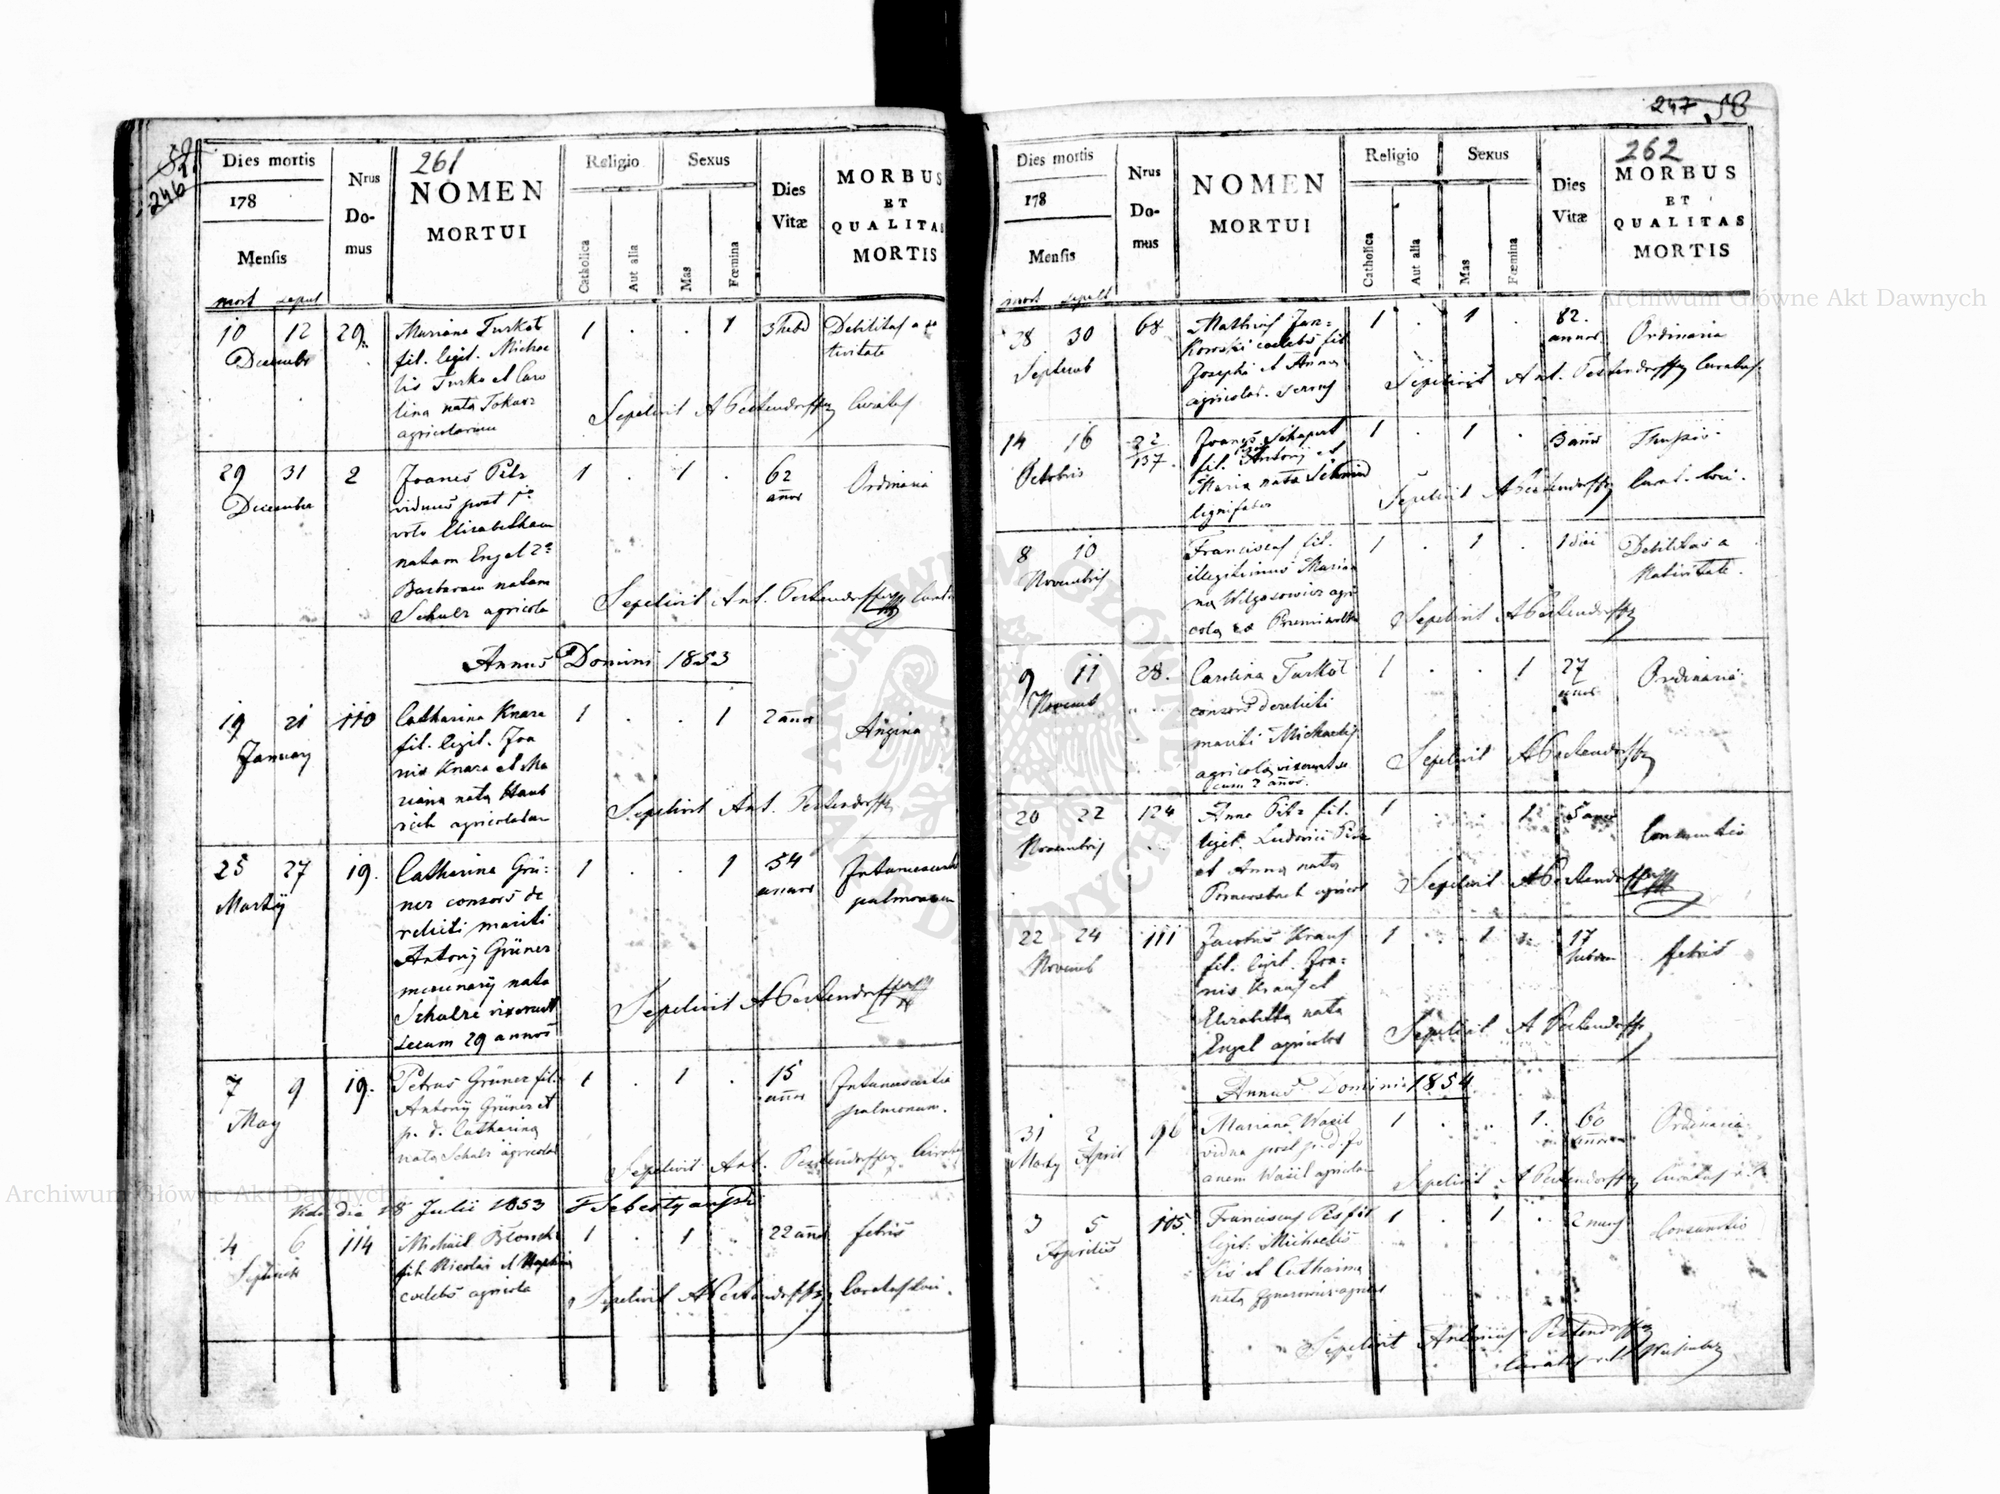 246
261
Dies mortis
178
Mensis
mort sepul
Nrus
Do-
mus
NOMEN
MORTUI
Religio
Catholica
Aut alia
Sexus
Mas
Fœmina
Dies
Vitæ
MORBUS
ET
QUALITAS
MORTIS
10 12 29.
Decembr
Mariana Turkot
fil. legit. Michae
lis Turko et Caro
lina nata Tokarz
agricolarum
1 . . 1
3 hebd
Debilitas a na
tivitate
Sepelivit A Pertendorffer Curatus
29 31 2
Decembr
Joanes Pilz
viduus post 1°
voto Elisabetham
natam Engel 2°
Barbaram natam
Schulz agricola
1 . 1 .
62
anor
Ordinaria
Sepelivit Ant. Pertendorffer
Annus Domini 1853
19 21 110
January
Catharina Knara
fil. legit. Joa
nis Knara et Ma
riana nata
agricolarum
1 . . 1
2 anor
Angina
Sepelivit Ant. Pertendorffer
25 27 19.
Martij
Catharina Grü-
ner consors de
relicti mariti
Antonij Grüner
mercenarij nata
Schulze vixerunt
secum 29 annos
1 . . 1
54
annor
pulmonum
Sepelivit A Pertendorffer
7 9 19.
May
Petrus Grüner fil.
Antonij Grüner et
p. d. Catharina
nata Schulz agricolar
1 . 1 .
15
anor
pulmonum.
Sepelivit Ant. Pertendorffer Curatus
die 18 Julii 1853
4 6 114
Michael
fil. Nicolai et
coelebs agricola
1 . 1 .
22 anor
febris
Sepelivit A Pertendorffer Curatus loci.
247 58
262
Dies mortis
178
Mensis
mort sepult
Nrus
Do-
mus
NOMEN
MORTUI
Religio
Catholica
Aut alia
Sexus
Mas
Fœmina
Dies
Vitæ
MORBUS
ET
QUALITAS
MORTIS
28 30 68
Septemb
Mathias Jan-
kowski coelebs fil
Josephi et Anna
agricolar.
1 . 1 .
82.
annor
Ordinaria
Sepelivit Ant. Pertendorffer Curatus.
14 16 22
137.
Octobris
Joanes Schapert
fil. Antonij et
Maria nata Schmid
1 . 1 .
3 anor
Sepelivit A Pertendorffer Curat. loci.
8 10
Novembris
Franciscus fil.
illegitimus Maria
na agri
cola ex
1 . 1 .
1 diei
Debilitas a
Nativitate.
Sepelivit A Pertendorffer
9 11 28.
Novemb
Carolina Turkot
consors derelicti
mariti Michaelis
agricola vixerunt se
cum 7 anos.
1 . . 1
27
anor
Ordinaria
Sepelivit A Pertendorffer
20 22 124
Novembris
Anna Pilz fil.
legit. Ludovici Pilz
et Anna nata
agricol
1 . . 1
5 anor
Sepelivit A Pertendorffer
22 24 111
Novemb
Jacobus Kraus
fil. legit. Joa-
nis Kraus et
Elisabetha nata
Engel agricolar
1 . 1
17
hebdom
febris
Sepelivit A Pertendorffer
Annus Domini 1854
31 2 96
Martij April
Mariana Wasil
vidua post p. d. Jo
anem Wasil agricola
1 . . 1.
60
anor
Ordinaria
Sepelivit A Pertendorffer Curatus
3 5 115.
Aprilis
Franciscus fil
legit. Michaelis
et Catharina
nata
1 . 1 .
2 mens
Sepelivit Antonius Pertendorffer
Archiwum Główne Akt Dawnych
Archiwum Główne Akt Dawnych
ARCHIWUM GŁÓWNE AKT DAWNYCH